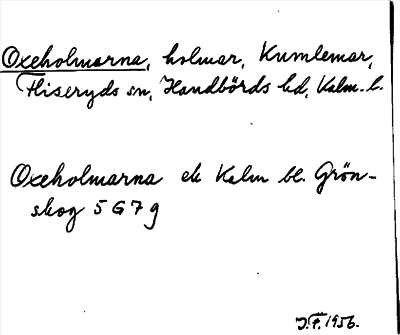 Oxeholmarna, holmar, Kumlemar,
Fliseryds sn, Handbörds hd, Kalm. l.
Oxeholmarna ek Kalm bl. Grön-
skog 5 G 7 g
J.F. 1956.